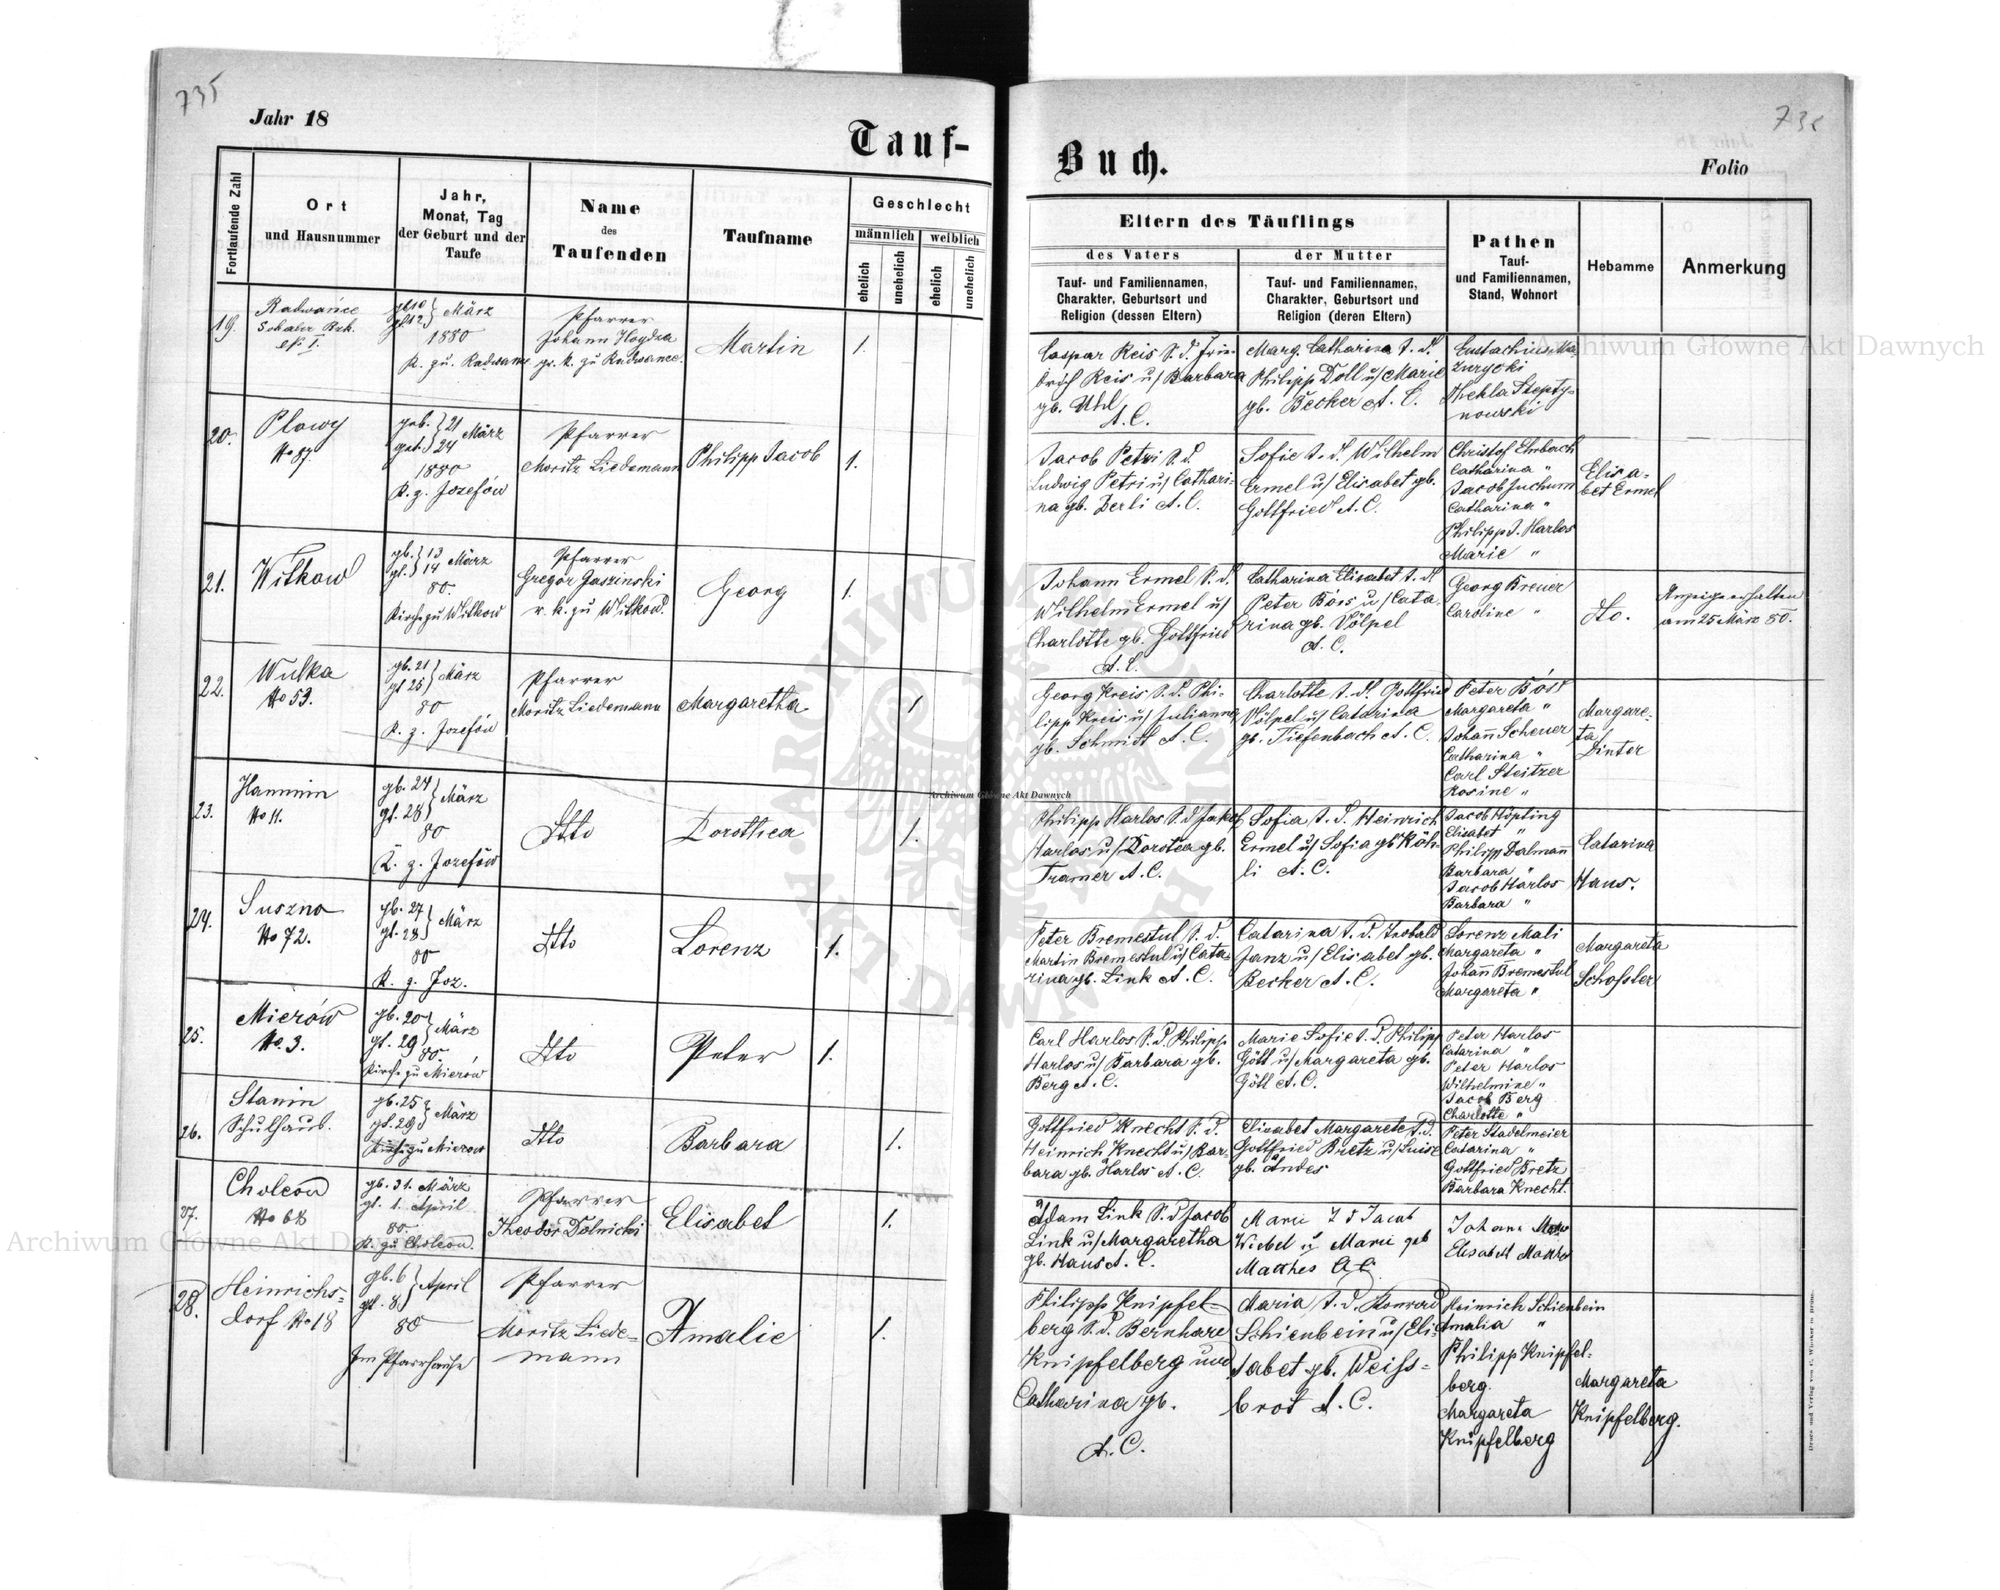 735
Jahr 18
Tauf-
Fortlaufende Zahl
Ort
und Hausnummer
Jahr,
Monat, Tag
der Geburt und der
Taufe
Name
des
Taufenden
Taufname
Geschlecht
männlich
weiblich
ehelich
unehelich
ehelich
unehelich
19.
Radwańce
№ I.
gb 10
gt 12 } März
1880
K. zu Radwance
Pfarrer
Johann Hogdza
gr. k. zu Radwance.
Martin
1.
20.
Plowy
No 87.
geb. } 21
get. } 24 März
1880
K. z. Jozefów
Pfarrer
Moritz Liedemann
Philipp Jacob
1.
21.
Witkow
gb. } 13
gt. } 14 März
80.
Kirche zu Witkow
Pfarrer
Gregor Gaszinski
r. k. zu Witkow.
Georg
1.
22.
Wulka
No 53.
gb. 21
gt 25 } März
80
K. z. Jozefów
Pfarrer
Moritz Liedemann
Margaretha
1
23.
Hanunin
No 11.
gb. 24
gt. 28 } März
80
K. z. Jozefów
Dtto
Dorothea
1.
24.
Suszno
No 72.
gb. 27
gt. 28 } März
80
K. z. Joz.
Dtto
Lorenz
1.
25.
Mierów
No. 3.
gb. 20
gt. 29 } März
80.
Kirche zu Mierów
Dtto
Peter
1.
26.
Stanin
Schulhaus.
gb. 25
gt. 29 } März
zu Mierow
Dtto
Barbara
1.
27.
Choleów
No 68
gb. 31. März
gt. 1. April
80
K. zu Choleow.
Pfarrer
Theodor Dolnicki
Elisabet
1.
28.
Heinrichs-
dorf No 18
gb. 6
gt. 8 } April
80
Im Pfarrhause
Pfarrer
Moritz Liede-
mann
Amalie
1.
Buch.
Folio
Eltern des Täuflings
des Vaters
der Mutter
Tauf- und Familiennamen,
Charakter, Geburtsort und
Religion (dessen Eltern)
Tauf- und Familiennamen,
Charakter, Geburtsort und
Religion (deren Eltern)
Pathen
Tauf-
und Familiennamen,
Stand, Wohnort
Hebamme
Anmerkung
Caspar Reis S. d. Frie-
drich Reis u/ Barbara
gb. Uhl
A. C.
Marg. Catharina T. d.
Philipp Doll u/ Marie
gb. Becker A. C.
Eustachius Ma-
zurycki
Thekla Stepty-
nowski
Jacob Petri S. d.
Ludwig Petri u/ Cathari-
na gb. Derli A. C.
Sofie T. d. Wilhelm
Ermel u/ Elisabet gb.
Gottfried A. C.
Christof Ehrbach
Catharina "
Jacob Juchum
Catharina "
Philipp J. Harlos
Marie "
Elisa-
bet Ermel
Johann Ermel S. d.
Wilhelm Ermel u/
Charlotte gb. Gottfried
A. C.
Catharina Elisabet T. d.
Peter Böss u/ Cata-
rina gb. Völpel
A. C.
Georg Breuer
Caroline "
dto.
Anzeige erhalten
am 25 März 80.
Georg Kreis S. d. Phi-
lipp Kreis u/ Julianna
gb. Schmidt A. C.
Charlotte T. d. Gottfried
Völpel u/ Catarina
gb. Tiefenbach A. C.
Peter Böss
Margareta "
Johann Scherer
Catharina "
Carl Steitzer
Rosine "
Margare-
ta
Dinter
Philipp Harlos S. d Jakob
Harlos u/ Dorotea gb.
Tramer A. C.
Sofia T. d. Heinrich
Ermel u/ Sofia gb Köh-
li A. C.
Jacob Höpling
Elisabet "
Philipp Dalmann
Barbara "
Jacob Harlos
Barbara "
Catarina
Haus.
Peter Bremestul S. d.
Martin Bremestul u/ Cata-
rina gb. Link A. C.
Catarina T. d. Teobald
Janz u/ Elisabet gb.
Becker A. C.
Lorenz Mali
Margareta "
Johann Bremestul
Margareta "
Margareta
Schossler
Carl Harlos S. d. Philipp
Harlos u/ Barbara gb.
Berg A. C.
Marie Sofie T. d. Philipp
Gött u/ Margareta gb.
Göll A. C.
Peter Harlos
Catarina "
Peter Harlos
Wilhelmine "
Jacob Berg
Charlotte "
Gottfried Knecht S. d.
Heinrich Knecht u/ Bar-
bara gb. Harlos A. C.
Elisabet Margarete T. d.
Gottfried Bretz u/ Luise
gb. Andes
Peter Stadelmeier
Catarina "
Gottfried Bretz
Barbara Knecht.
Adam Link S. d Jacob
Link u/ Margaretha
gb. Haus A. C.
Marie T d Jacob
Wiebel u Marie geb
Matthes A C.
Johann
Elisabet
Philipp Knipfel-
berg S. d. Bernhard
Knipfelberg und
Catharina gb.
A. C.
Maria T. d. Konrad
Schienbein u/ Eli-
sabet gb. Weiss-
brot A. C.
Heinrich Schienbein
Amalia "
Philipp Knipfel-
berg.
Margareta
Knipfelberg
Margareta
Knipfelberg.
Druck und Verlag von C. Winiker in Brünn.
Archiwum Główne Akt Dawnych
Archiwum Główne Akt Dawnych
Archiwum Główne Akt Dawnych